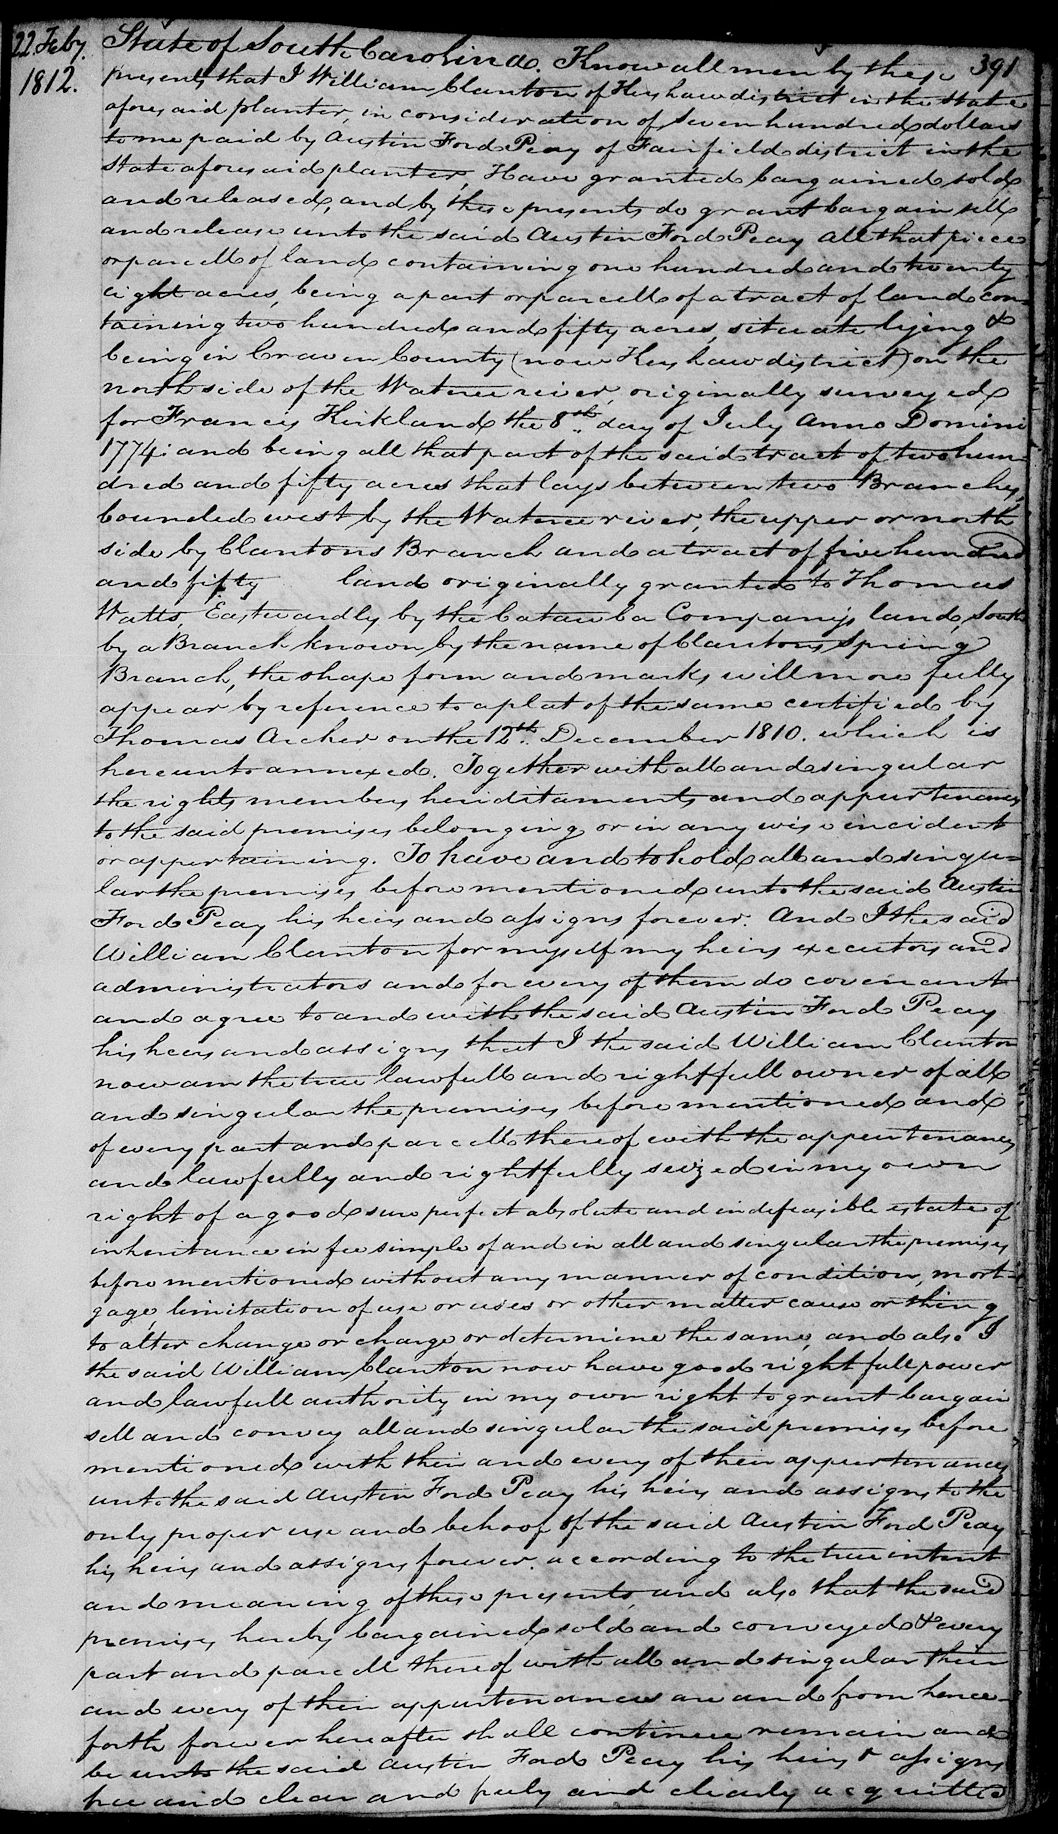 22. Feby.
1812.
391
State of South Carolina. Know all men by these
presents that I William Clanton of Kershaw district in the State
aforesaid planter, in consideration of seven hundred dollars
to me paid by Austin Ford Peay of Fairfield district in the
State aforesaid planter, Have granted bargained sold
and released, and by these presents do grant bargain sell
and release unto the said Austin Ford Peay all that piece
or parcell of land containing one hundred and twenty
eight acres, being a part or parcell of a tract of land con-
taining two hundred and fifty acres, situate lying &
being in Craven County (now Kershaw district) on the
north side of the Wateree river, originally surveyed
for Francis Kirkland the 8th day of July Anno Domini
1774: and being all that part of the said tract of two hun-
dred and fifty acres that lays between two Branches,
bounded west by the Wateree river, the upper or north
side by Clantons Branch and a tract of five hundred
and fifty land originally granted to Thomas
Watts, Eastwardly by the Catawba Companys land, South
by a Branch known by the name of Clantons Spring
Branch, the shape form and marks will more fully
appear by reference to a plat of the same certified by
Thomas Archer on the 12th. December 1810. which is
hereunto annexed. Together with all and singular
the rights members heriditaments and appurtenances
to the said premises belonging or in any wise incident
or appertaining. To have and to hold all and singu-
lar the premises before mentioned unto the said Austin
Ford Peay his heirs and assigns forever. And I the said
William Clanton for myself my heirs executors and
administrators and for every of them do covenant
and agree to and with the said Austin Ford Peay
his heirs and assigns that I the said William Clanton
now am the true lawfull and rightfull owner of all
and singular the premises before mentioned and
of every part and parcell thereof with the appurtenances
and lawfully and rightfully seized in my own
right of a good sure perfect absolute and indefeasible estate of
inheritance in fee simple of and in all and singular the premises
before mentioned without any manner of condition, mort-
gage, limitation of use or uses or other matter cause or thing
to alter change or charge or determine the same, and also I
the said William Clanton now have good right full power
and lawfull authority in my own right to grant bargain
sell and convey all and singular the said premises before
mentioned with their and every of their appurtenances
unto the said Austin Ford Peay his heirs and assigns to the
only proper use and behoof of the said Austin Ford Peay
his heirs and assigns forever. according to the true intent
and meaning of these presents, and also that the said
premises hereby bargained sold and conveyed & every
part and parcell thereof with all and singular their
and every of their appurtenances are and from hence-
forth forever hereafter shall continue remain and
be unto the said Austin Ford Peay his heirs & assigns
free and clear and freely and clearly acquitted